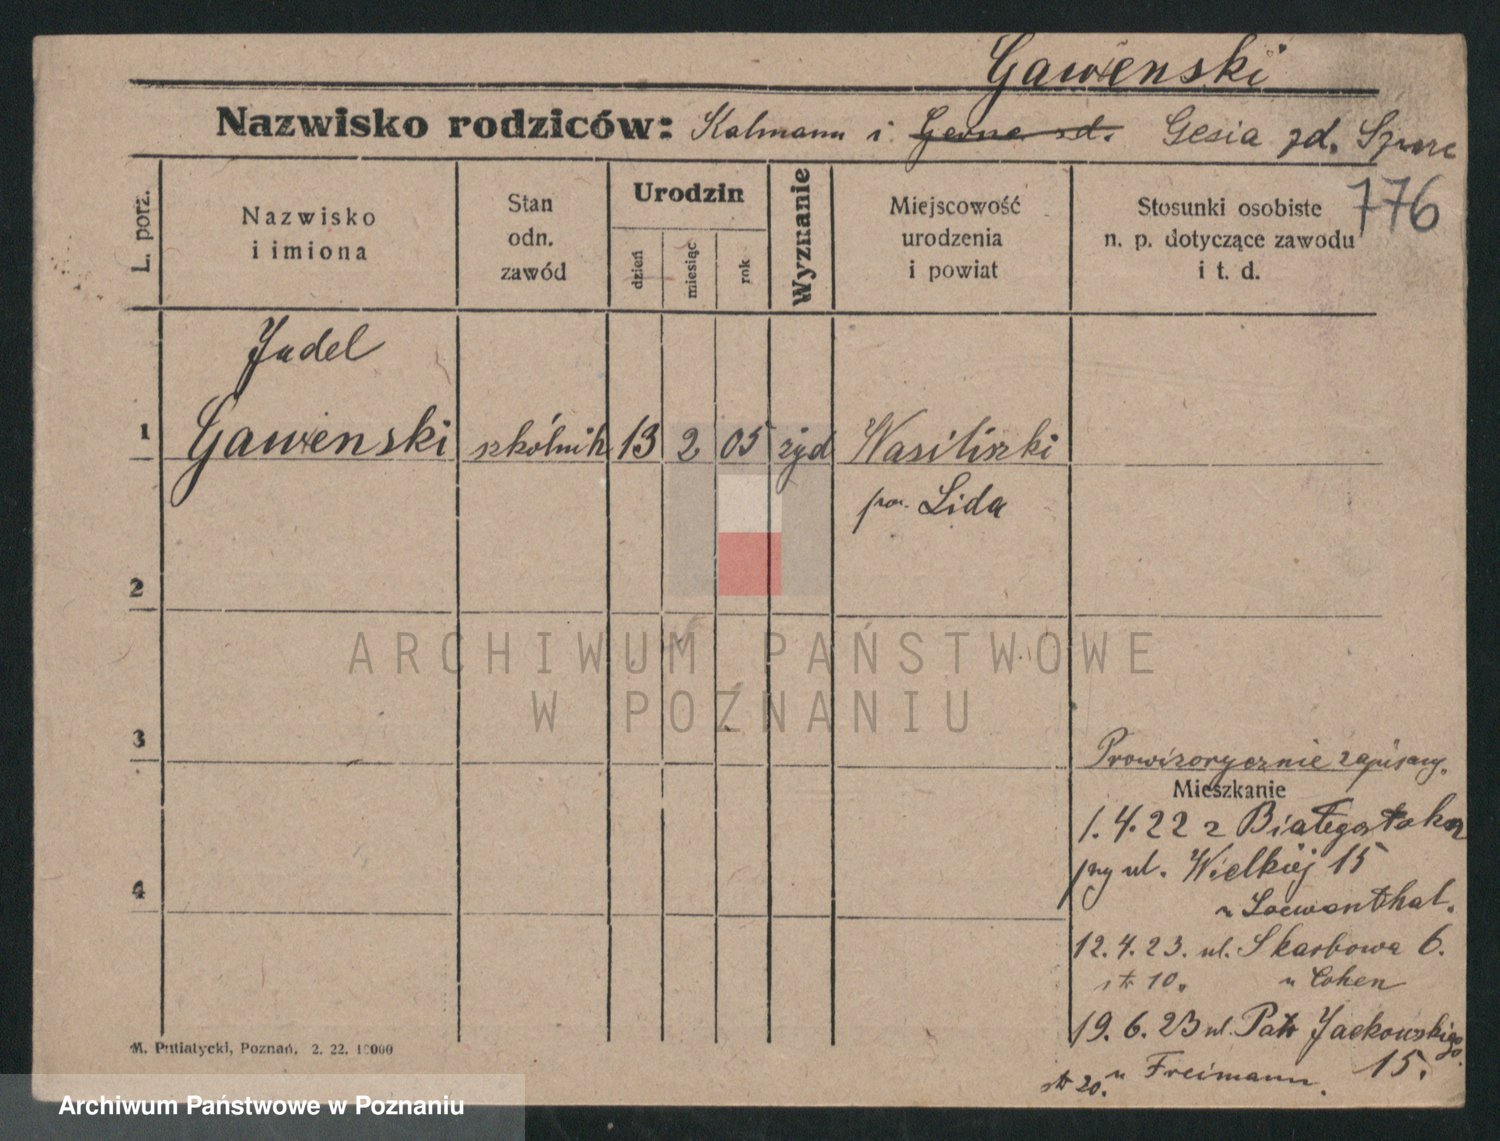 Gawieński
Nazwisko rodziców: Kalmann i Gesia zd. Szwarc
776
L. porz.
Nazwisko
i imiona
Stan
odn.
zawód
Urodzin
dzień
miesiąc
rok
Wyznanie
Miejscowość
urodzenia
i powiat
Stosunki osobiste
n. p. dotyczące zawodu
i t. d.
Judel
1 Gawieński szkólnik 13 2 05 żyd Wasiliszki
pow. Lida
2
ARCHIWUM PAŃSTWOWE
W POZNANIU
3
Prowizorycznie zapisany.
Mieszkanie
1.4.22 z Białegostoku
przy ul. Wielkiéj 15
4
u Loewenthal.
12.4.23. ul. Skarbowa 6.
str 10. u Cohen
19.6.23 ul. Patr Jackowskiego
15.
str 20. u Freimann.
M. Putiatycki, Poznań. 2. 22. 10000
Archiwum Państwowe w Poznaniu